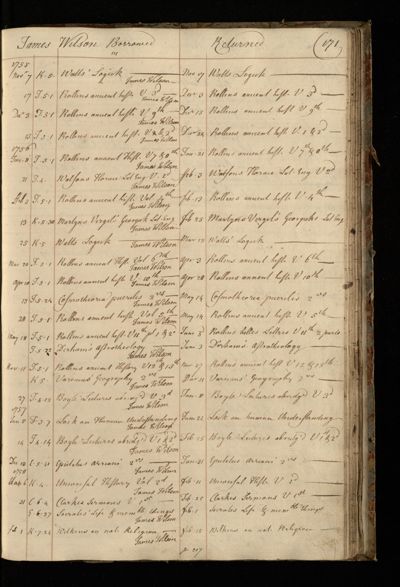 James Wilson Borrowed Returned 171
1755
Nov 7 K.5 Watts' Logick Nov 17 Watts Logick
James Wilson
17 F.5.1 Rollins ancient hist. V 3d Dec 3 Rollins ancient hist. V 3d
James Wilson
Dec 3 F.5.1 Rollins ancient hist. V 9th Dec 15 Rollins ancient hist V 9th
James Wilson
15 F.5.1 Rollins ancient hist. V 1 & 2d Dec 22 Rollins ancient hist V. 1 & 2d
James Wilson
1756
Jan 8 F.5.1 Rollins ancient Hist. V 7 & 8th Jan 21 Rollins ancient hist. V 7th & 8th
James Wilson
21 Watsons Horace Lat Eng V. 2d Feb 3 Watsons Horace Lat Eng V 2d
James Wilson
Feb 3 F.5.1 Rollins ancient hist. Vol 4th Feb 13 Rollins ancient hist. V 4th
James Wilson
13 Martyns Virgils Georgick Lat Eng Feb 25 Martyns Virgils Georgicks Lat Eng
James Wilson
25 K.5 Watts Logick Mar 20 Watts' Logick
James Wilson
Mar 20 F.5.1 Rollins ancient Hist. Vol 6th Apr 3 Rollins ancient hist. V 6th
James Wilson
Apr F.5.1 Rollins ancient hist V. 10th Apr 20 Rollins ancient hist. V 10th
James Wilson
F.5.24 Cosmotheoria puerilis 2 May 14 Cosmotheoria puerilis 2
James Wilson
F.5.1 Rollins ancient hist. Vol 5th May 14 Rollins ancient hist. V 5th
James Wilson
May F.5.1 Rollins ancient hist V 11th 1 & 2d June 3 Rollins belles Lettres V 11th 2 parts
F.5.32 Derhams Astrotheology June 3 Derhams Astrotheology
James Wilson
Nov 11 F.5.1 Rollins ancient History V 12 & 13th Nov 27 Rollins ancient hist V 12 & 13th
K.5 Varenius Geography 2 Dec 11 Varenius' Geography 2
James Wilson
27 Boyle Lectures abridg'd V 3d Jan 8 Boyle' Lectures abridg'd V 3d
James Wilson
1757
Jan 8 F.3.7 Lock on Human Understanding Jan 22 Lock on human Understanding
James Wilson
14 Boyle Lectures abridg'd V 1 & 2d Feb 15 Boyle Lectures abridg'd V 1 & 2d
James Wilson
Epictetus arriani 2 Jan 21 Epictetus arriani 2
1758 James Wilson
K.4 Universal History Vol Feb 11 Universal Hist. V
James Wilson
21 C.6.4 Clarkes Sermons V. 1st Feb 25 Clarkes Sermons V 1st
Socrates' Life & memble things Socrates Life & memble things
James Wilson
Feb 1 K.7.22 Wilkins on nat. Religion Feb 10 Wilkins on nat Religion
James Wilson